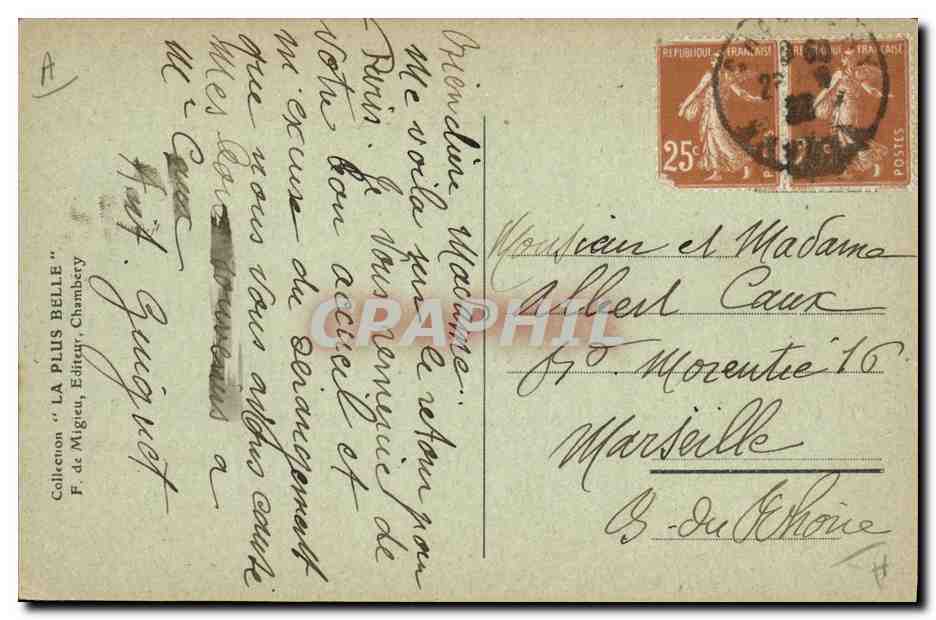 Bien chère Madame..
Me voila sur le retour pour
Paris. Je vous remercie de
votre bon accueil et
m'excuse du derangement
que nous vous avons causé
Mes bons souvenirs a
Mr Caux
Collection "LA PLUS BELLE"
F. de Migieu, Editeur, Chambéry
REPUBLIQUE FRANÇAISE
25c
REPUBLIQUE FRANÇAISE
POSTES
Monsieur et Madame
Albert Caux
16
Marseille
B-du Rhône
CRAPHIL
A